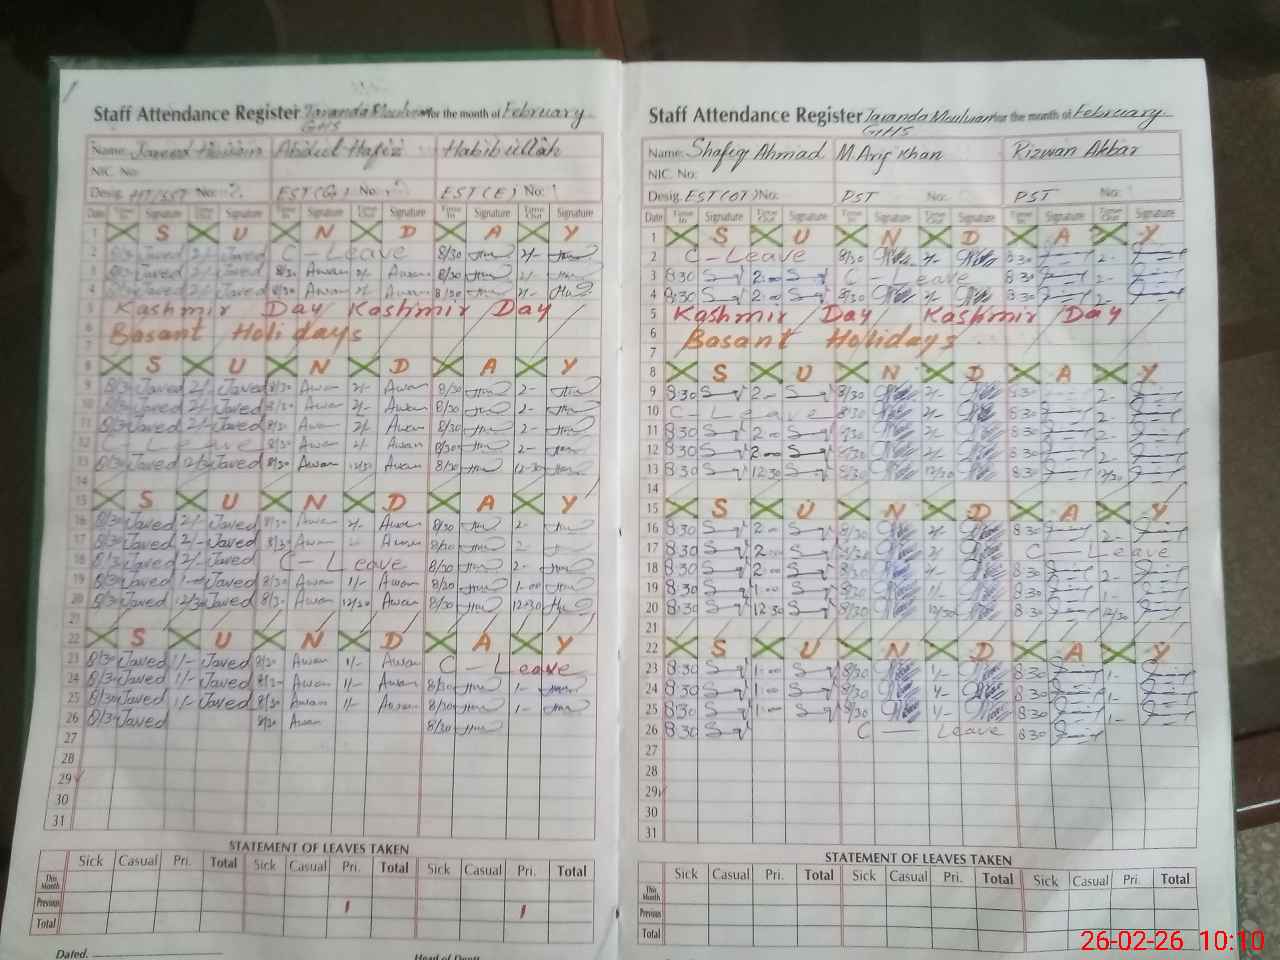 Staff Attendance Register Taranda Moulvian for the month of February
GHS
Name: Javed Hussain Abdul Hafiz Habibullah
NIC. No:
Desig. HT/SST No: EST(G) No. EST(E) No:
Date Time In Signature Time Out Signature Time In Signature Time Out Signature Time In Signature Time Out Signature
1 S U N D A Y
2 8/30 Javed 2/- Javed C - Leave 8/30 2/-
3 8/30 Javed 2/- Javed 8/30 Awan 2/- Awan 8/30 2/-
4 8/30 Javed 2/- Javed 8/30 Awan 2/- Awan 8/30 2/-
5 Kashmir Day Kashmir Day
6 Basant Holidays
7
8 S U N D A Y
9 8/30 Javed 2/- Javed 8/30 Awan 2/- Awan 8/30 2-
10 8/30 Javed 2/- Javed 8/30 Awan 2/- Awan 8/30 2-
11 8/30 Javed 2/- Javed 8/30 Awan 2/- Awan 8/30 2-
12 C - Leave 8/30 Awan 2/- Awan 8/30 2-
13 8/30 Javed 12/30 Javed 8/30 Awan 12/30 Awan 8/30 12-30
14
15 S U N D A Y
16 8/30 Javed 2/- Javed 8/30 Awan 2/- Awan 8/30 2-
17 8/30 Javed 2/- Javed 8/30 Awan Awan 8/30 2-
18 8/30 Javed 2/- Javed C - Leave 8/30 2-
19 8/30 Javed 1- Javed 8/30 Awan 1/- Awan 8/30 1-00
20 8/30 Javed 12/30 Javed 8/30 Awan 12/30 Awan 8/30 12-30
21
22 S U N D A Y
23 8/30 Javed 1/- Javed 8/30 Awan 1/- Awan C - Leave
24 8/30 Javed 1/- Javed 8/30 Awan 1/- Awan 8/30 1-
25 8/30 Javed 1/- Javed 8/30 Awan 1/- Awan 8/30 1-
26 8/30 Javed 8/30 Awan 8/30
27
28
29
30
31
STATEMENT OF LEAVES TAKEN
Sick Casual Pri. Total Sick Casual Pri. Total Sick Casual Pri. Total
This Month
Previous 1 1
Total
Dated.
Head of Deptt
Staff Attendance Register Taranda Moulvian for the month of February
GHS
Name: Shafiq Ahmad M. Arif Khan Rizwan Akbar
NIC. No:
Desig. EST(OT) No: PST No: PST No:
Date Time In Signature Time Out Signature Time In Signature Time Out Signature Time In Signature Time Out Signature
1 S U N D A Y
2 C - Leave 8/30 2/- 8 30 2-
3 8:30 2:00 C - Leave 8 30 2-
4 8:30 2:00 8/30 2/- 8 30 2-
5 Kashmir Day Kashmir Day
6 Basant Holidays
7
8 S U N D A Y
9 8:30 2-00 8/30 2/- 8 30 2-
10 C - Leave 8/30 2/- 8 30 2-
11 8:30 2-00 8/30 2/- 8 30 2-
12 8:30 2-00 8/30 2/- 8 30 2-
13 8:30 12:30 8/30 12/30 8 30 12/30
14
15 S U N D A Y
16 8:30 2-00 8/30 2/- 8 30 2-
17 8:30 2-00 8/30 2/- C - Leave
18 8:30 2-00 8/30 2/- 8 30 2-
19 8:30 1-00 8/30 1/- 8 30 1-
20 8:30 12:30 8/30 12/30 8 30 12/30
21
22 S U N D A Y
23 8:30 1-00 8/30 1/- 8 30 1-
24 8:30 1:00 8/30 1/- 8 30 1-
25 8:30 1:00 8/30 1/- 8 30 1-
26 8:30 C - Leave 8 30
27
28
29
30
31
STATEMENT OF LEAVES TAKEN
Sick Casual Pri. Total Sick Casual Pri. Total Sick Casual Pri. Total
This Month
Previous
Total
26-02-26 10:10